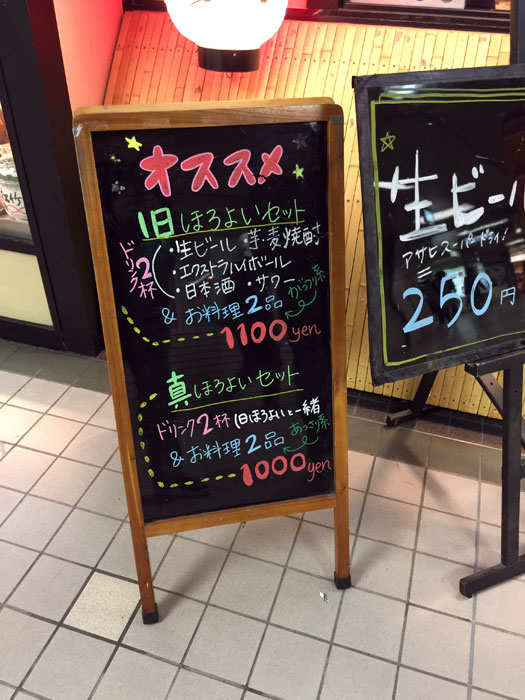 オススメ
旧ほろよいセット
ドリンク2杯
・生ビール ・芋・麦焼酎
・エクストラハイボール
・日本酒 ・サワー
& お料理2品 がっつり系
1100yen
真ほろよいセット
ドリンク2杯 (旧ほろよいと一緒
& お料理2品 あっさり系
1000yen
生ビール
アサヒスーパードライ!
250円